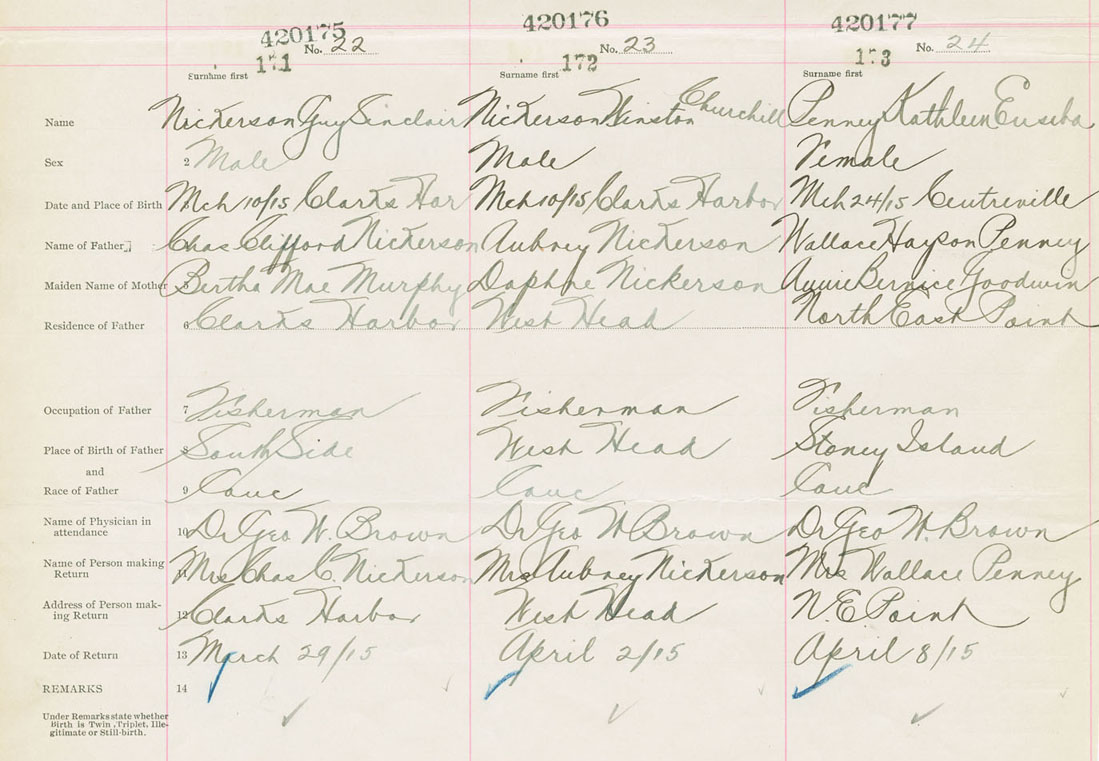 420175 420176 420177
No. 22 No. 23 No. 24
171 172 173
Surname first Surname first Surname first
Name Nickerson Guy Sinclair Nickerson Winston Churchill Penney Kathleen Euseba
Sex 2 Male Male Female
Date and Place of Birth Mch 10/15 Clarks Har Mch 10/15 Clarks Harbor Mch 24/15 Centreville
Name of Father Chas Clifford Nickerson Aubrey Nickerson Wallace Hayson Penney
Maiden Name of Mother 5 Bertha Mae Murphy Daphne Nickerson Annie Bernice Goodwin
Residence of Father 6 Clarks Harbor West Head North East Point
Occupation of Father 7 Fisherman Fisherman Fisherman
Place of Birth of Father 8 South Side West Head Stoney Island
and
Race of Father 9 Cauc Cauc Cauc
Name of Physician in
attendance 10 Dr Geo W. Brown Dr Geo W Brown Dr Geo W. Brown
Name of Person making
Return 11 Mrs Chas C. Nickerson Mrs Aubrey Nickerson Mrs Wallace Penney
Address of Person mak-
ing Return 12 Clarks Harbor West Head N.E Point
Date of Return 13 March 29/15 April 2/15 April 8/15
REMARKS 14
Under Remarks state whether
Birth is Twin, Triplet, Ille-
gitimate or Still-birth.